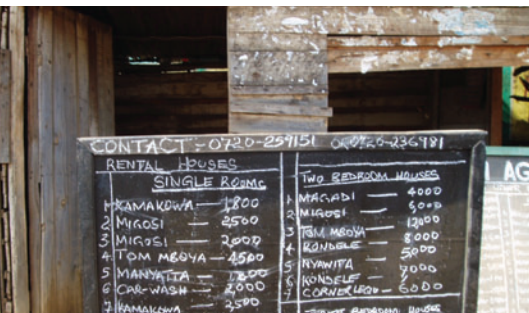 CONTACT:-0720-259151 0720-236981
RENTAL HOUSES
SINGLE ROOMS
1 KAMAKOWA — 1,800
2 MIGOSI — 2500
3 MIGOSI — 2,000
4 TOM MBOYA — 4500
5 MANYATTA — 1,800
6 CAR-WASH — 2,000
7 KAMAKOWA 2,500
TWO BEDROOM HOUSES
1 MAGADI — 4000
2 MIGOSI — 5,000
3 TOM MBOYA — 12,000
4 KONDELE — 8000
5 NYAWITA — 5,000
6 KONDELE — 7000
7 CORNER LEGO — 6000
BEDROOM HOUSES
AG